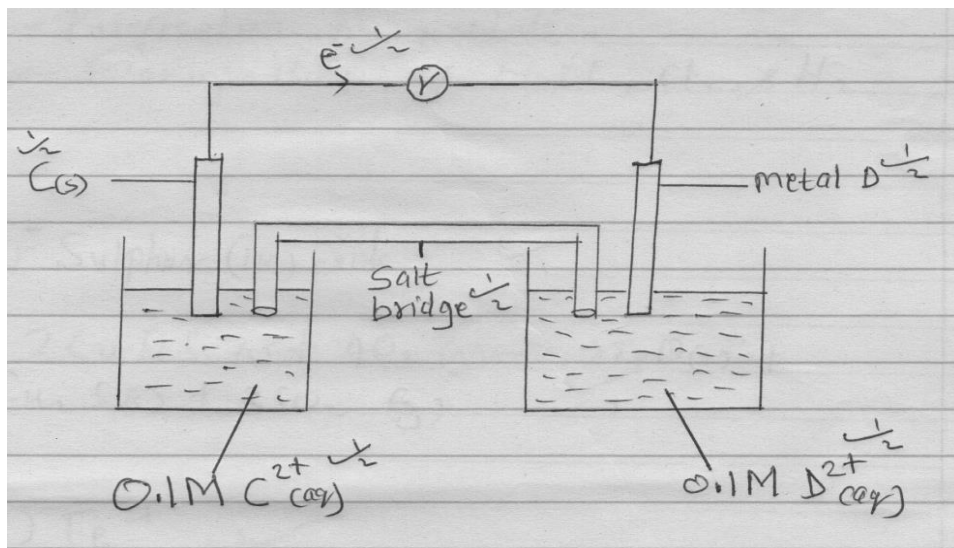 e⁻ ✓½
V
✓½
C(s)
metal D ✓½
Salt
bridge ✓½
0.1M C²⁺(aq) ✓½
0.1M D²⁺(aq) ✓½